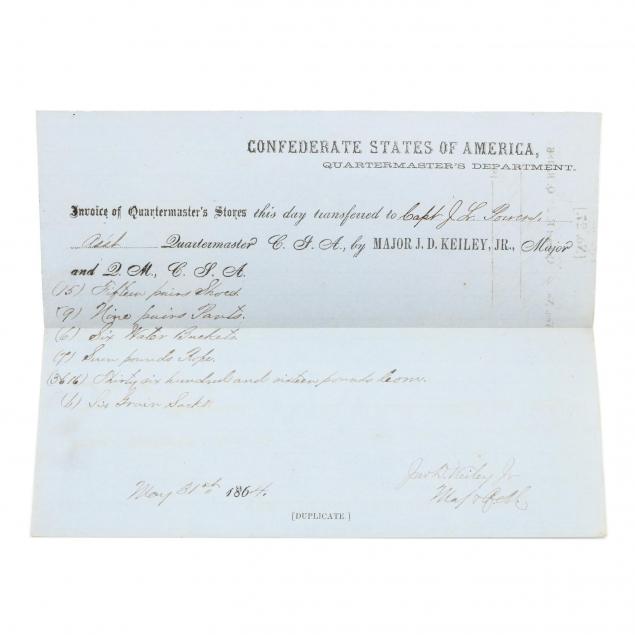 CONFEDERATE STATES OF AMERICA,
QUARTERMASTER'S DEPARTMENT.
Invoice of Quartermaster's Stores this day transferred to Capt J. L. Powers
Asst Quartermaster C. S. A., by MAJOR J. D. KEILEY, JR., Major
and Q. M., C. S. A.
(15) Fifteen pairs Shoes
(9) Nine pairs Pants.
(6) Six Water Buckets
(7) Seven pounds Rope.
(3616) Thirty six hundred and sixteen pounds Corn.
(6) Six Grain Sacks
May 31st 1864.
Jno D. Keiley Jr
Maj & QM
[DUPLICATE.]